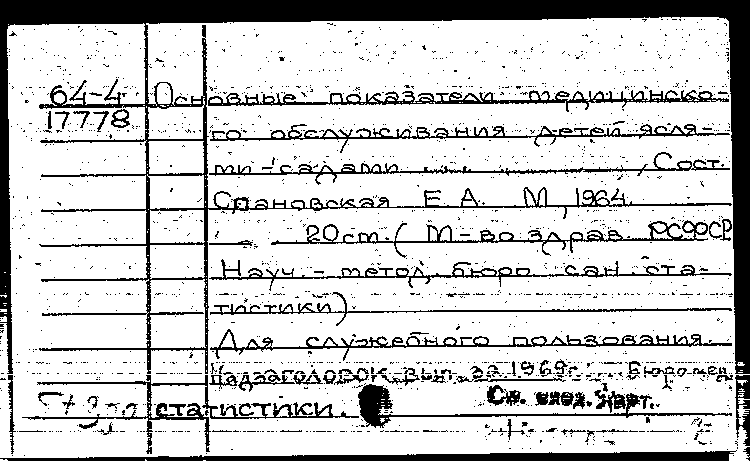 64-4 Основные показатели медицинско-
17778 го обслуживания детей ясля-
ми-садами , Сост.
Спановская Е. А. М, 1964.
20 ст. (М-во здрав. РСФСР
Науч.-метод. бюро сан. ста-
тистики)
Для служебного пользования.
Надзаголовок вып. за 1969г: Бюро мед.
статистики. См. след. карт.